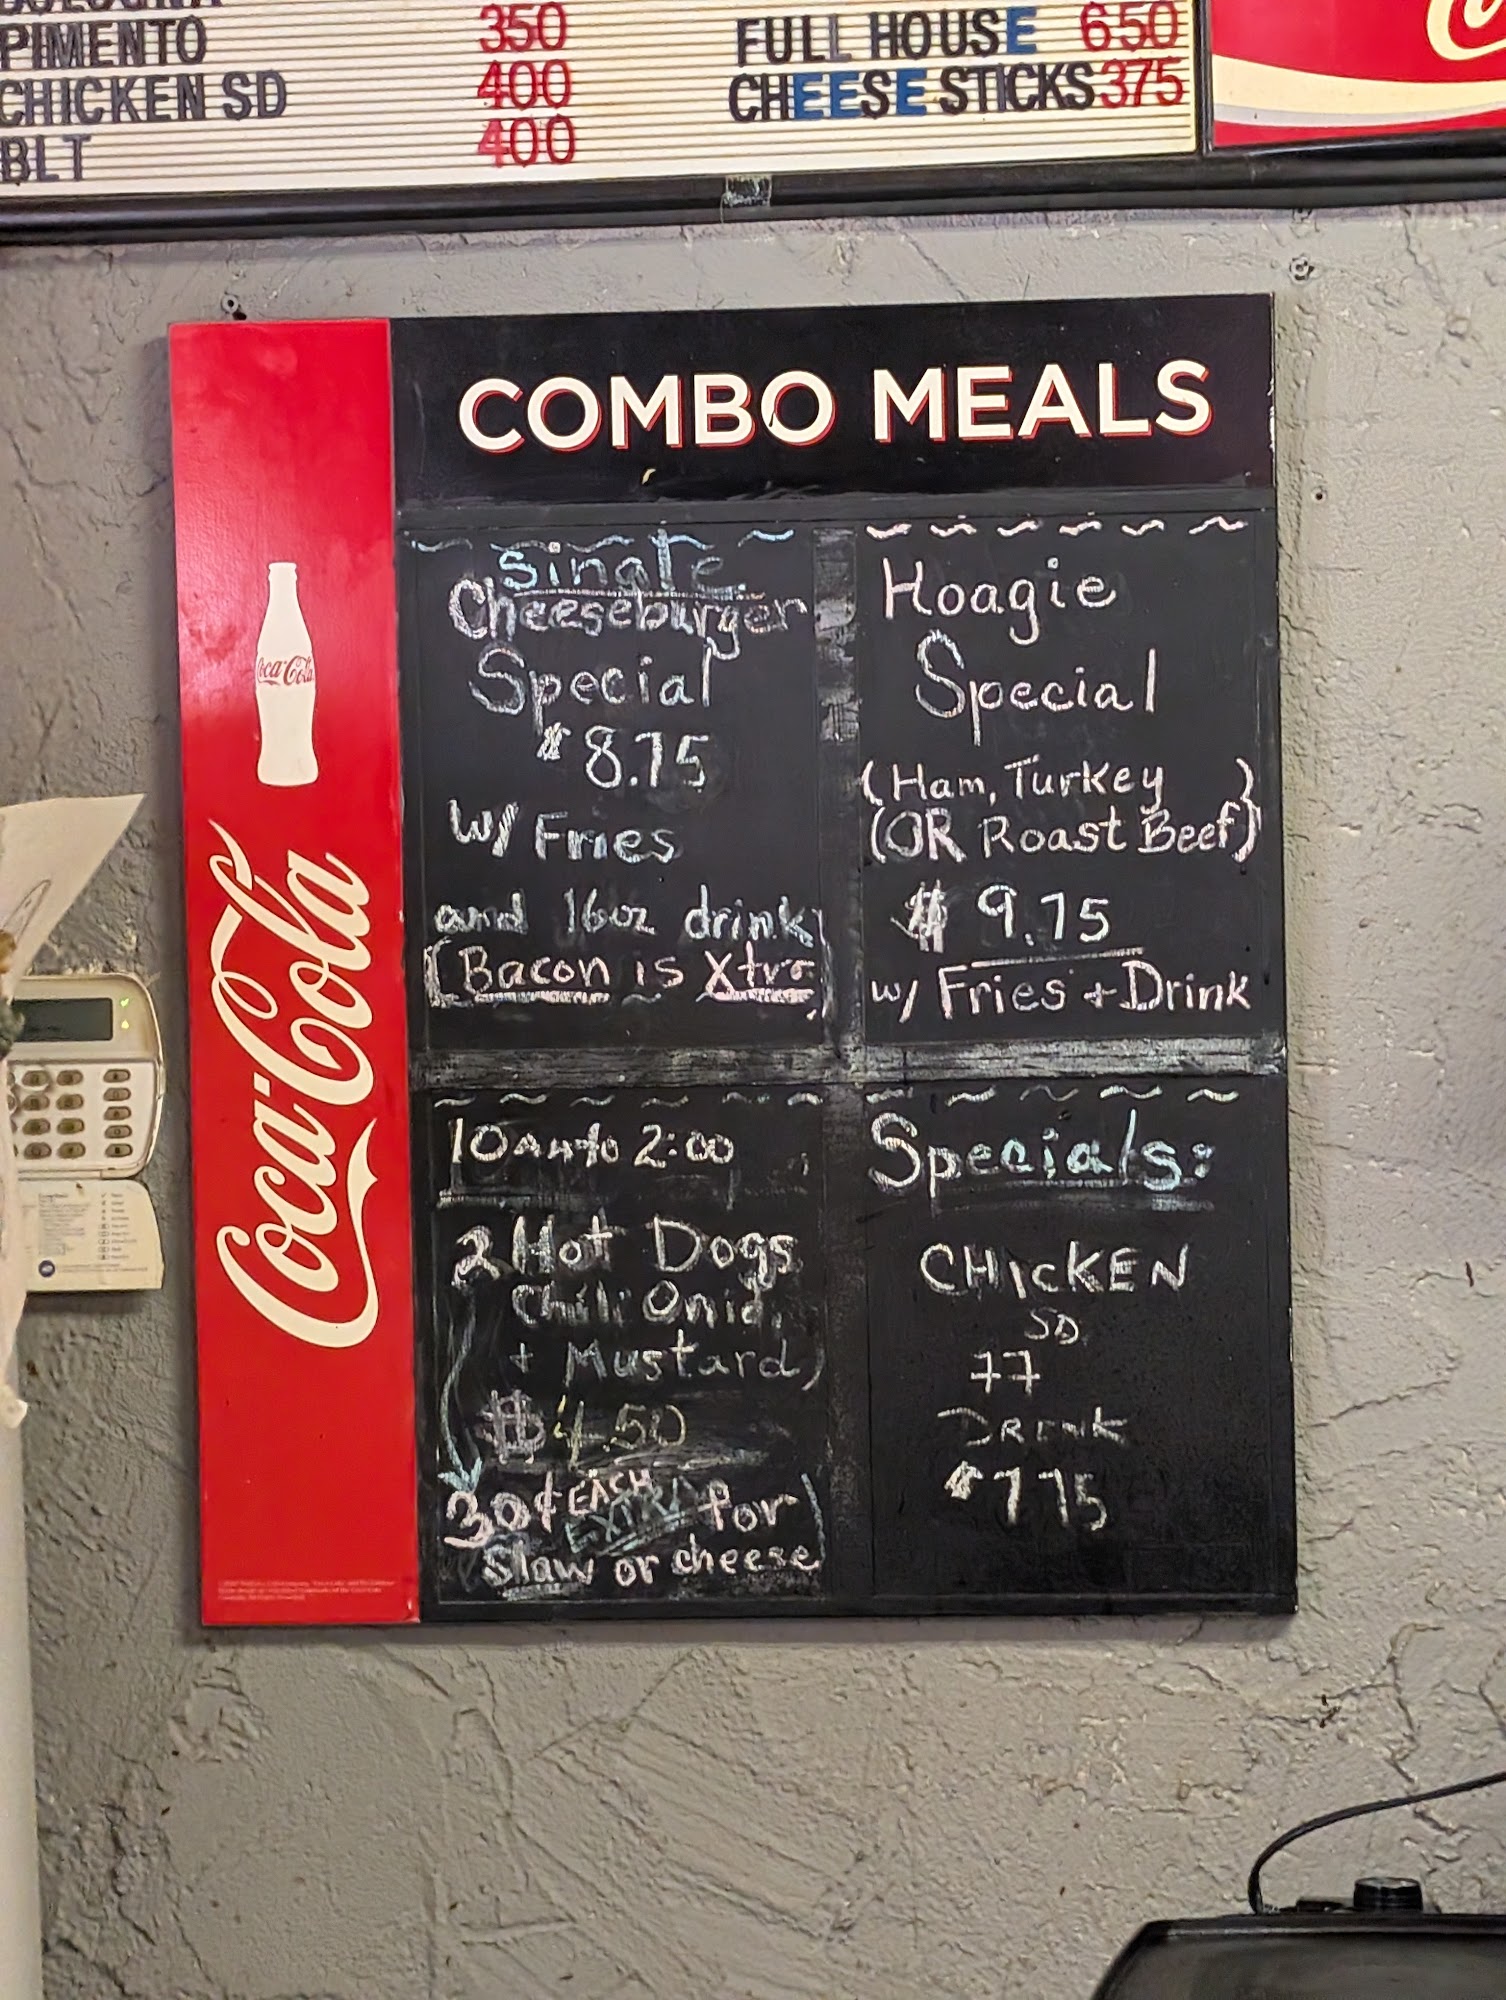 PIMENTO 350
CHICKEN SD 400
BLT 400
FULL HOUSE 650
CHEESE STICKS 375
COMBO MEALS
Coca-Cola
Coca-Cola
Single
Cheeseburger
Special
$8.75
w/ Fries
and 16oz drink
[Bacon is Xtra
Hoagie
Special
(Ham, Turkey)
(OR Roast Beef)
$9.75
w/ Fries + Drink
10am to 2:00
2 Hot Dogs
Chili Onio
+ Mustard)
$4.50
30¢ EACH
EXTRA for
slaw or cheese
Specials:
CHICKEN
SD
FF
DRINK
$7.75